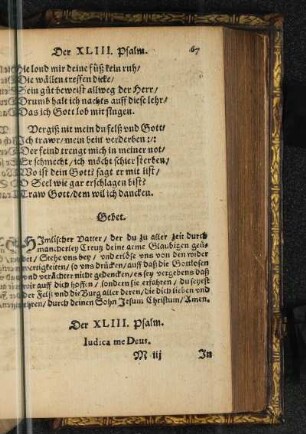 Der XLIII. Psalm. 67
Die lond mir deine füß kein ruh/
Die wällen treffen dicke/
Sein güt beweist allweg der Herr/
Drumb halt ich nachts auff diese lehr/
Das ich Gott lob mit singen.
Vergiß nit mein du felß vnd Gott/
Ich trawr/ mein hein verderben :/:
Der feind trengt mich in meiner not/
Er schmecht/ ich möcht schier sterben/
Wo ist dein Gott? sagt er mit list/
O Seel wie gar erschlagen bist?
Traw Gott/ dem wil ich dancken.
Gebet.
Himlischer Vatter/ der du zu aller zeit durch
mancherley Creutz deine arme Glaubigen
Stehe vns bey/ vnd erlöse vns von den wider
wertigkeiten/ so vns drücken/ auff daß die Gottlosen
vnd verächter nicht gedencken/ es sey vergebens daß
wir auff dich hoffen/ sondern sie erfahren/ du seyest
der Felß vnd die Burg aller deren/ die dich lieben vnd
durch deinen Sohn Jesum Christum/ Amen.
Der XLIII. Psalm.
Iudica me Deus.
M iij In